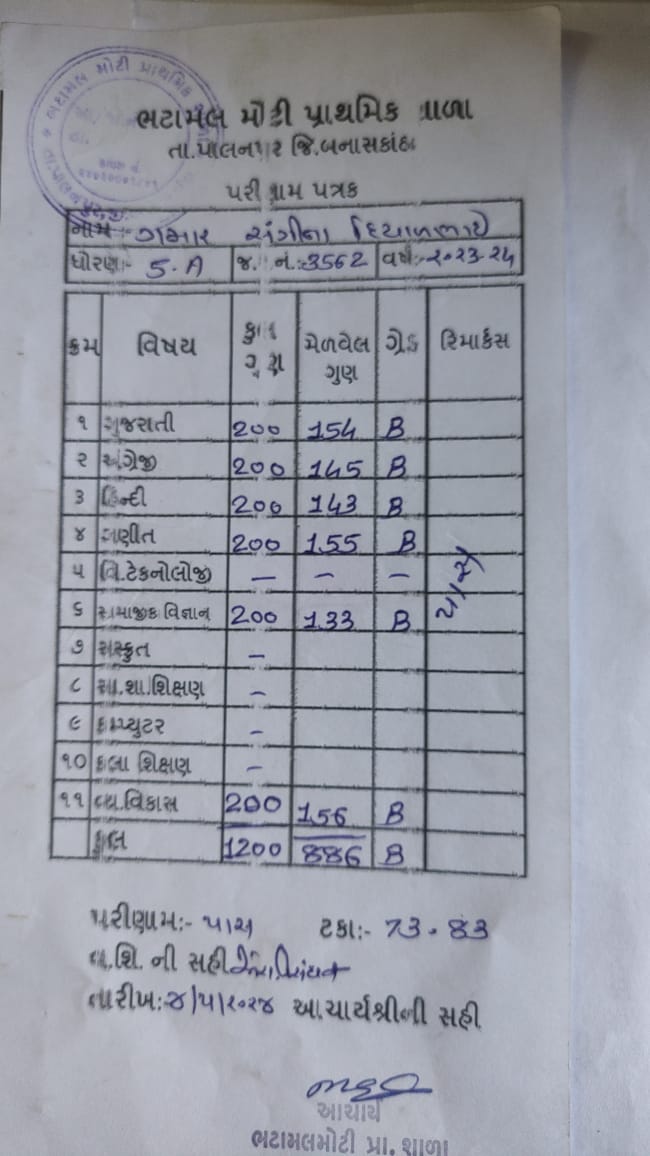 ભટામલ મોટી પ્રાથમિક શાળા
તા.પાલનપુર જિ.બનાસકાંઠા
પરીણામ પત્રક
નામ:- ગમાર સંગીના
ધોરણ:- 5.A જ. નં.:-3562 વર્ષ:-૨૦૨૩-૨૪
ક્રમ વિષય કુલ ગુણ મેળવેલ ગુણ ગ્રેડ રિમાર્કસ
૧ ગુજરાતી 200 154 B
૨ અંગ્રેજી 200 145 B
૩ હિન્દી 200 143 B
૪ ગણીત 200 155 B
૫ વિ.ટેકનોલોજી – – –
૬ સામાજીક વિજ્ઞાન 200 133 B
પાસ
૭ સંસ્કૃત –
૮ સા.શા.શિક્ષણ –
૯ કમ્પ્યુટર –
૧૦ કલા શિક્ષણ –
૧૧ વ્ય.વિકાસ 200 156 B
કુલ 1200 886 B
પરીણામ:- પાસ ટકા:- 73.83
વ.શિ. ની સહી
તારીખ:૪/૫/૨૦૨૪ આ.ચાર્યશ્રીની સહી
આચાર્ય
ભટામલમોટી પ્રા. શાળા